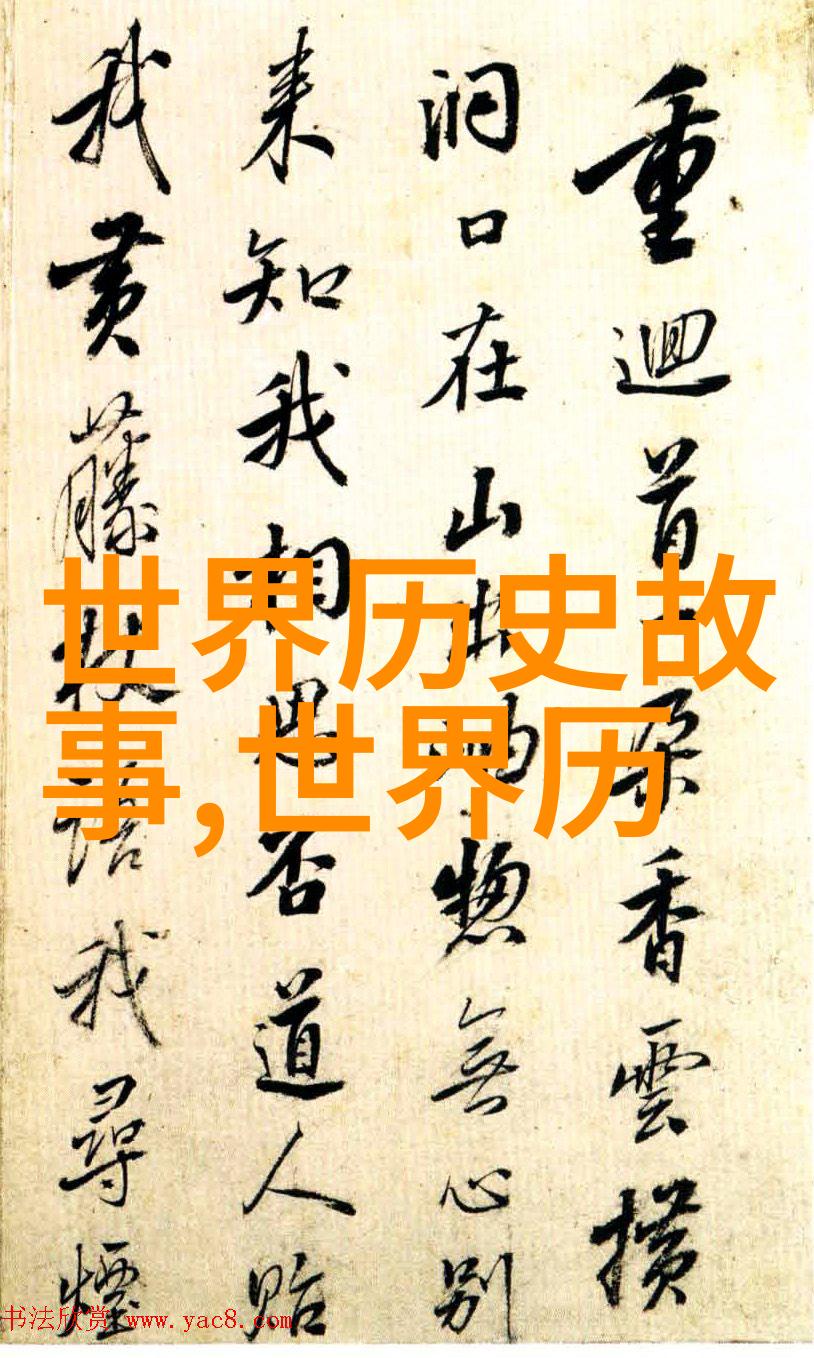 重迴首一朵香雲
洞口在山惣無心別
来知我相否道人貽
我黄藤杖我尋煙
世界历史故
事,世界历
书法欣赏 www.yac8.com